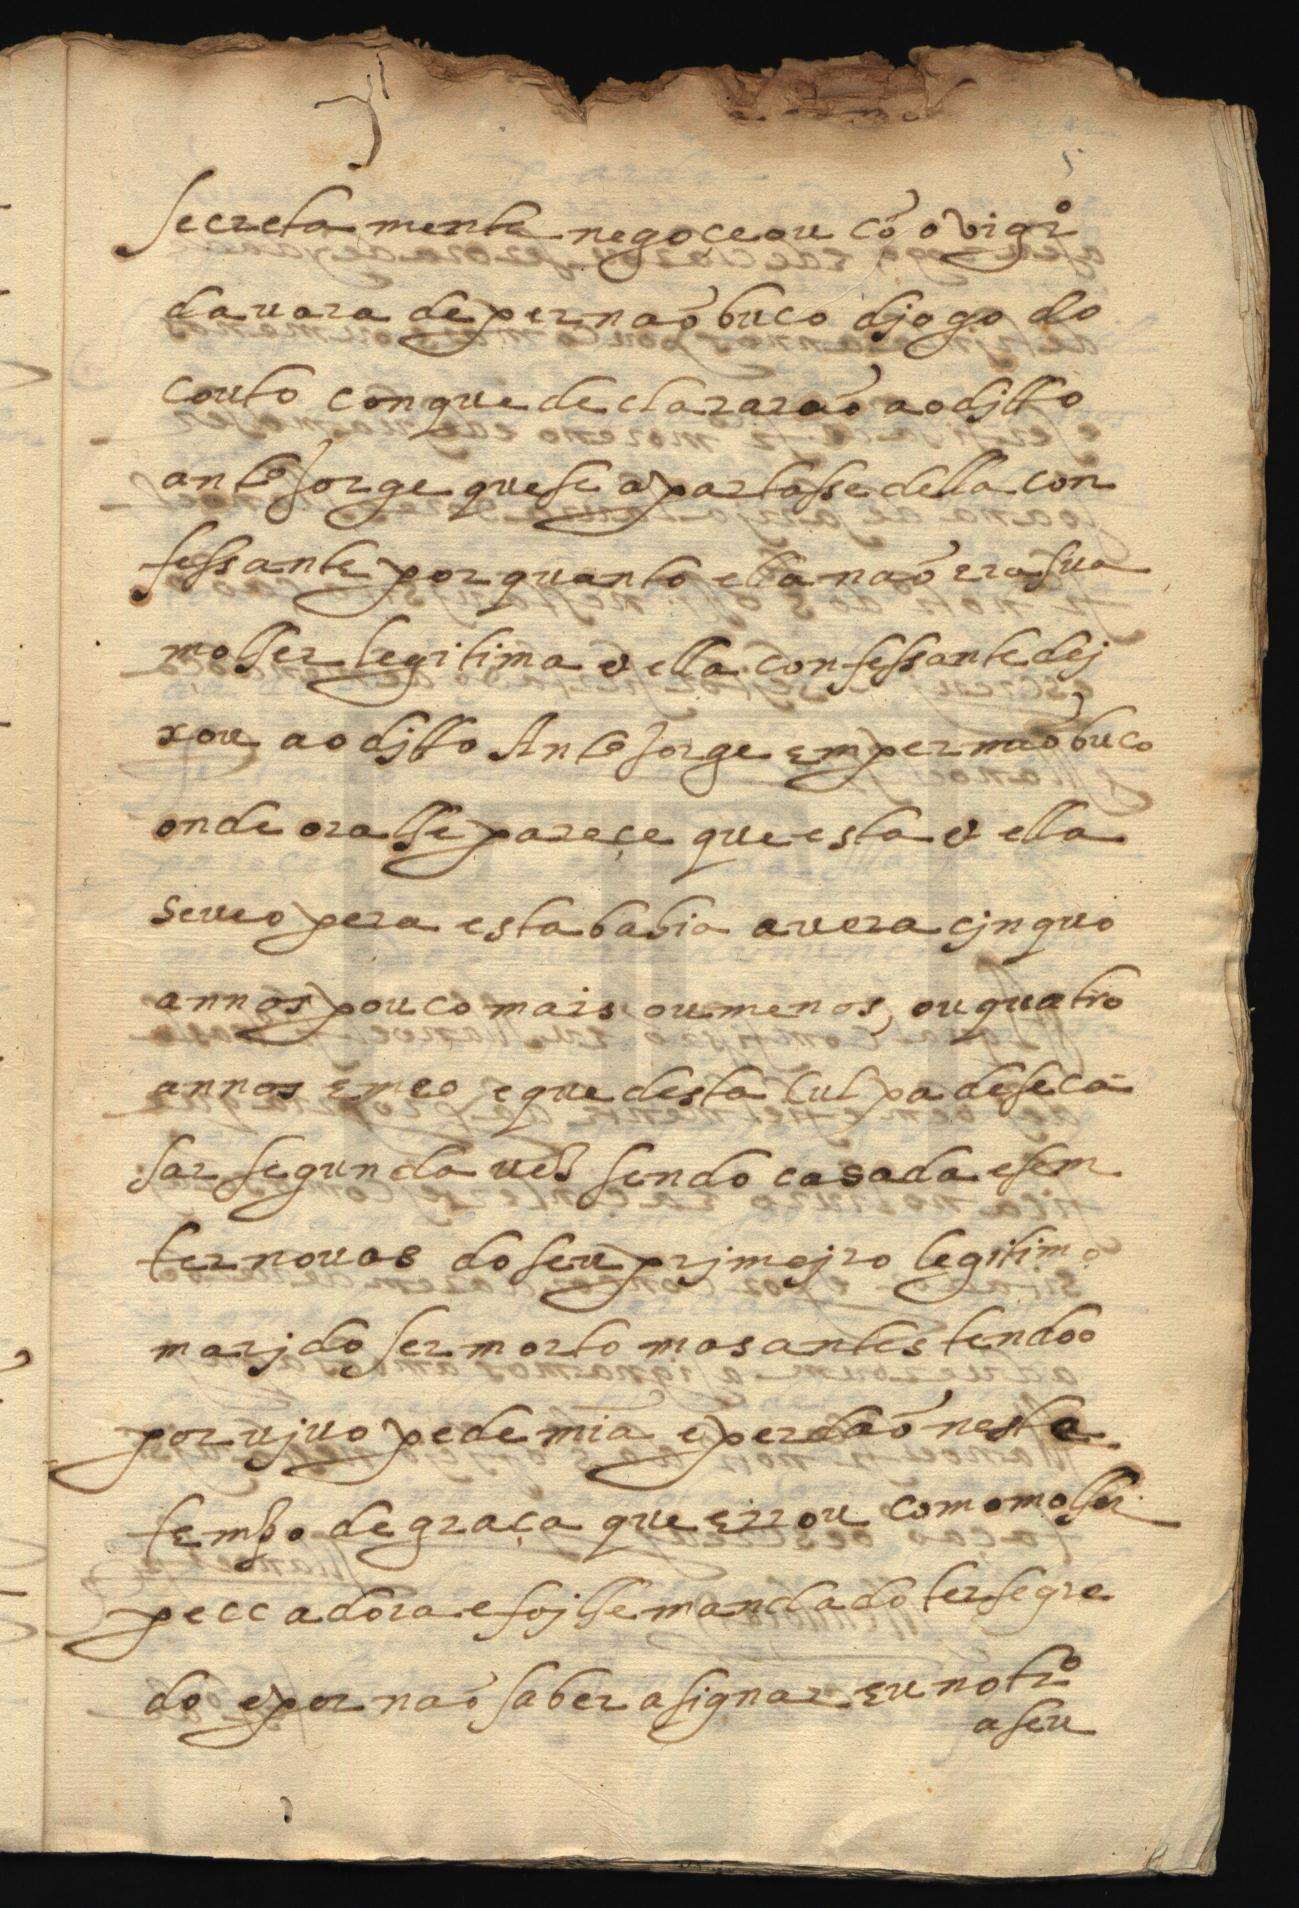 5
secretamente negoçeou cõ o vigrº
da vara de pernaõbuco djogo do
couto con que declararaõ ao djtto
antº Jorge que se apartasse della con
fessante por quanto ella naõ era sua
molher legitima & ella confessante dej
xou ao djtto Antº Jorge em pernaõbuco
onde ora lhe pareçe que esta & ella
se veo pera esta bahia avera cjnquo
annos pouco mais ou menos, ou quatro
annos e meo e que desta culpa de se ca
sar segunda ves sendo casada e sem
ter novas do seu prjmejro legitimo
marjdo ser morto mas antes tendoo
por vjvo pede mia e perdaõ nesta
tempo de graça que errou como molher
peccadora e foj lhe mandado ter segre
do e por naõ saber asignar eu notrº
a seu